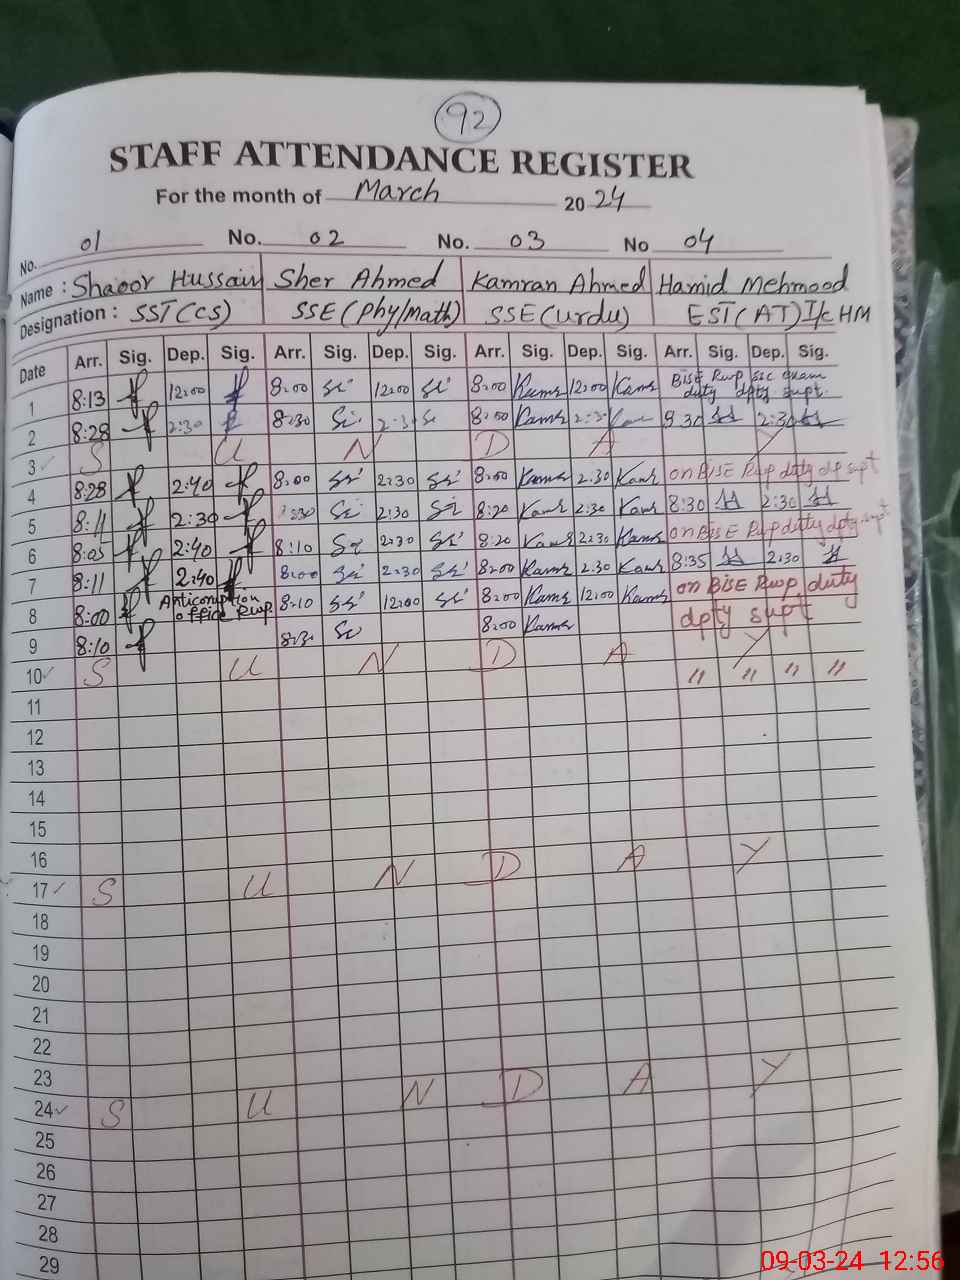 92
STAFF ATTENDANCE REGISTER
For the month of March 2024
No. 01 No. 02 No. 03 No 04
Name : Shaoor Hussain Sher Ahmed Kamran Ahmed Hamid Mehmood
Designation : SST(CS) SSE(Phy/Math) SSE(Urdu) EST(AT) I/c HM
Date Arr. Sig. Dep. Sig. Arr. Sig. Dep. Sig. Arr. Sig. Dep. Sig. Arr. Sig. Dep. Sig.
1 8:13 12:00 8:00 12:00 8:00 12:00 BISE Rwp ssc exam duty dpty supt.
2 8:28 2:30 8:30 2:30 8:00 2:30 8:30 2:30
3 S U N D A Y
4 8:28 2:40 8:00 2:30 8:00 2:30 on BISE Rwp duty dp supt
5 8:11 2:30 2:30 8:20 2:30 8:30 2:30
6 8:05 2:40 8:10 2:30 8:20 2:30 on BISE Rwp duty dpty. supt
7 8:11 2:40 8:00 2:30 8:00 2:30 8:35 2:30
8 8:00 Anticorruption office Rwp 8:10 12:00 8:00 12:00 on BISE Rwp duty
9 8:10 8:30 8:00 dpty supt
10 S U N D A Y
11 " " " "
12
13
14
15
16
17 S U N D A Y
18
19
20
21
22
23
24 S U N D A Y
25
26
27
28
29
09-03-24 12:56